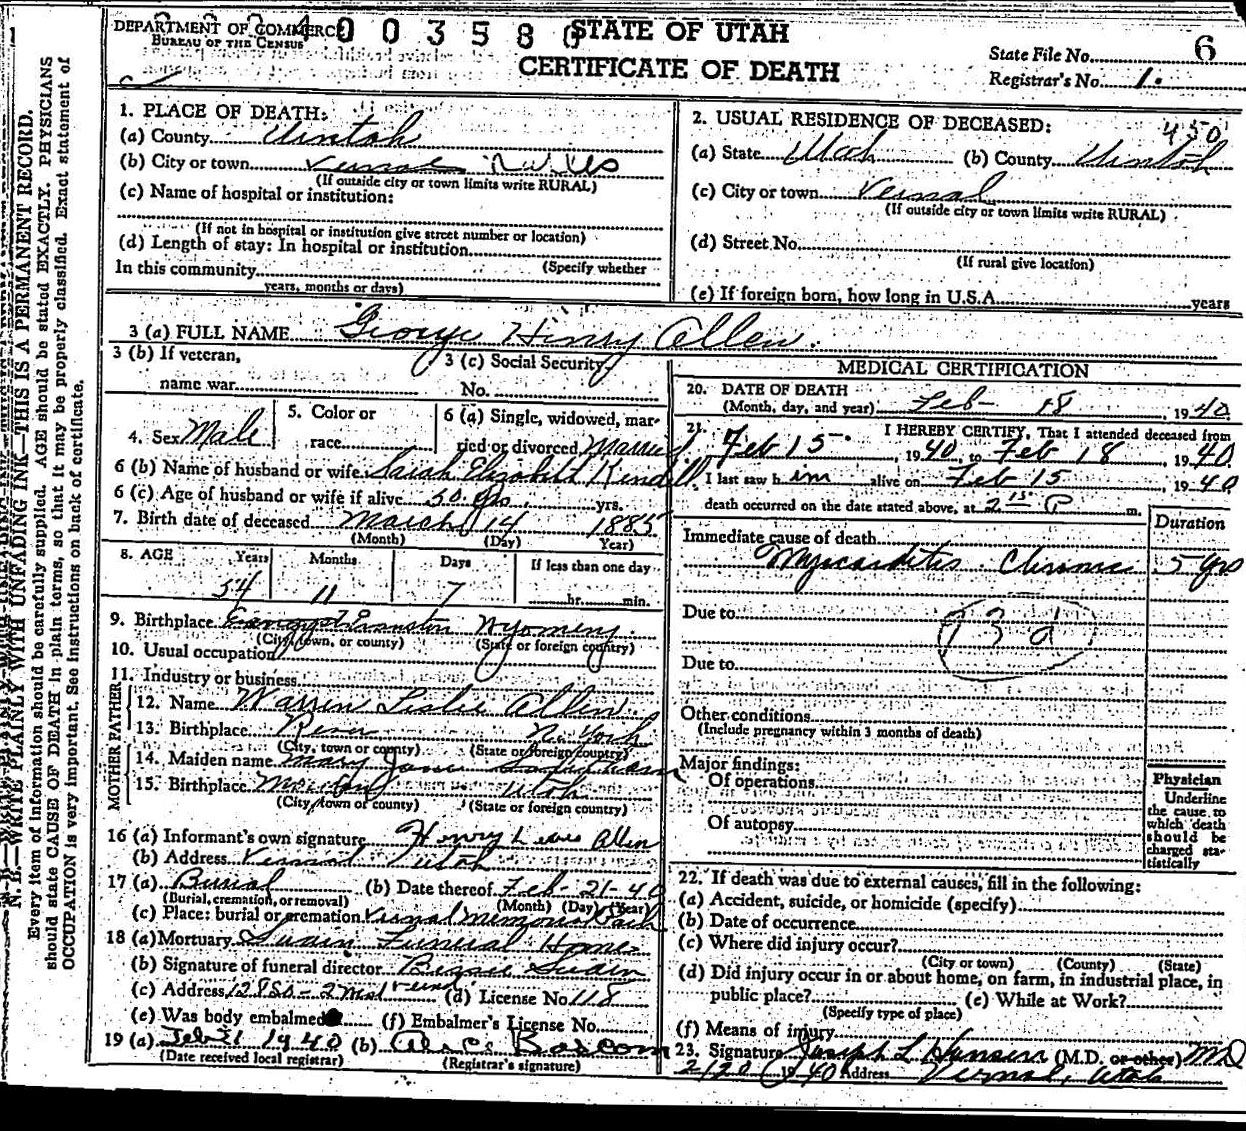 DEPARTMENT OF COMMERCE
BUREAU OF THE CENSUS
4 0 0 3 5 8 0
STATE OF UTAH
CERTIFICATE OF DEATH
State File No. 6
Registrar's No. 1.
N. B.—WRITE PLAINLY WITH UNFADING INK—THIS IS A PERMANENT RECORD.
Every item of information should be carefully supplied. AGE should be stated EXACTLY. PHYSICIANS
should state CAUSE OF DEATH in plain terms, so that it may be properly classified. Exact statement of
OCCUPATION is very important. See instructions on back of certificate.
1. PLACE OF DEATH:
(a) County Uintah
(b) City or town Vernal
(If outside city or town limits write RURAL)
(c) Name of hospital or institution:
(If not in hospital or institution give street number or location)
(d) Length of stay: In hospital or institution
In this community (Specify whether
years, months or days)
2. USUAL RESIDENCE OF DECEASED: 450
(a) State Utah (b) County Uintah
(c) City or town Vernal
(If outside city or town limits write RURAL)
(d) Street No.
(If rural give location)
(e) If foreign born, how long in U.S.A. years
3 (a) FULL NAME George Henry Allen.
3 (b) If veteran,
name war
3 (c) Social Security
No.
4. Sex Male
5. Color or
race
6 (a) Single, widowed, mar-
ried or divorced Married
6 (b) Name of husband or wife Sarah Elizabeth Kendell
6 (c) Age of husband or wife if alive 50 yrs. yrs.
7. Birth date of deceased March 14 1885
(Month) (Day) Year)
8. AGE Years Months Days If less than one day
54 11 7 hr. min.
9. Birthplace Evanston Wyoming.
(City, town, or county) (State or foreign country)
10. Usual occupation
11. Industry or business
FATHER
12. Name Warren Leslie Allen.
13. Birthplace N. York
(City, town or county) (State or foreign country)
MOTHER
14. Maiden name Mary Jane
15. Birthplace Utah
(City, town or county) (State or foreign country)
16 (a) Informant's own signature Henry Allen
(b) Address Vernal Utah
17 (a) Burial (b) Date thereof Feb - 21 - 40
(Burial, cremation, or removal) (Month) (Day) (Year)
(c) Place: burial or cremation Vernal Memorial Park
18 (a) Mortuary Swain Funeral Home
(b) Signature of funeral director Swain
(c) Address Vernal (d) License No. 118
(e) Was body embalmed (f) Embalmer's License No.
19 (a) Feb 21 1940 (b) Alice Bascom
(Date received local registrar) (Registrar's signature)
MEDICAL CERTIFICATION
20. DATE OF DEATH
(Month, day, and year) Feb - 18, 1940
21. I HEREBY CERTIFY, That I attended deceased from
Feb 15, 1940, to Feb 18, 1940.
I last saw him alive on Feb 15, 1940
death occurred on the date stated above, at 2 15 P m.
Duration
Immediate cause of death
Myocarditis Chronic 5 yrs
Due to
93 d
Due to
Other conditions
(Include pregnancy within 3 months of death)
Major findings:
Of operations
Of autopsy
Physician
Underline
the cause to
which death
should be
charged sta-
tistically
22. If death was due to external causes, fill in the following:
(a) Accident, suicide, or homicide (specify)
(b) Date of occurrence
(c) Where did injury occur?
(City or town) (County) (State)
(d) Did injury occur in or about home, on farm, in industrial place, in
public place? (e) While at Work?
(Specify type of place)
(f) Means of injury
23. Signature Joseph L Hansen (M.D. or other) MD
2/20 1940 Address Vernal, Utah